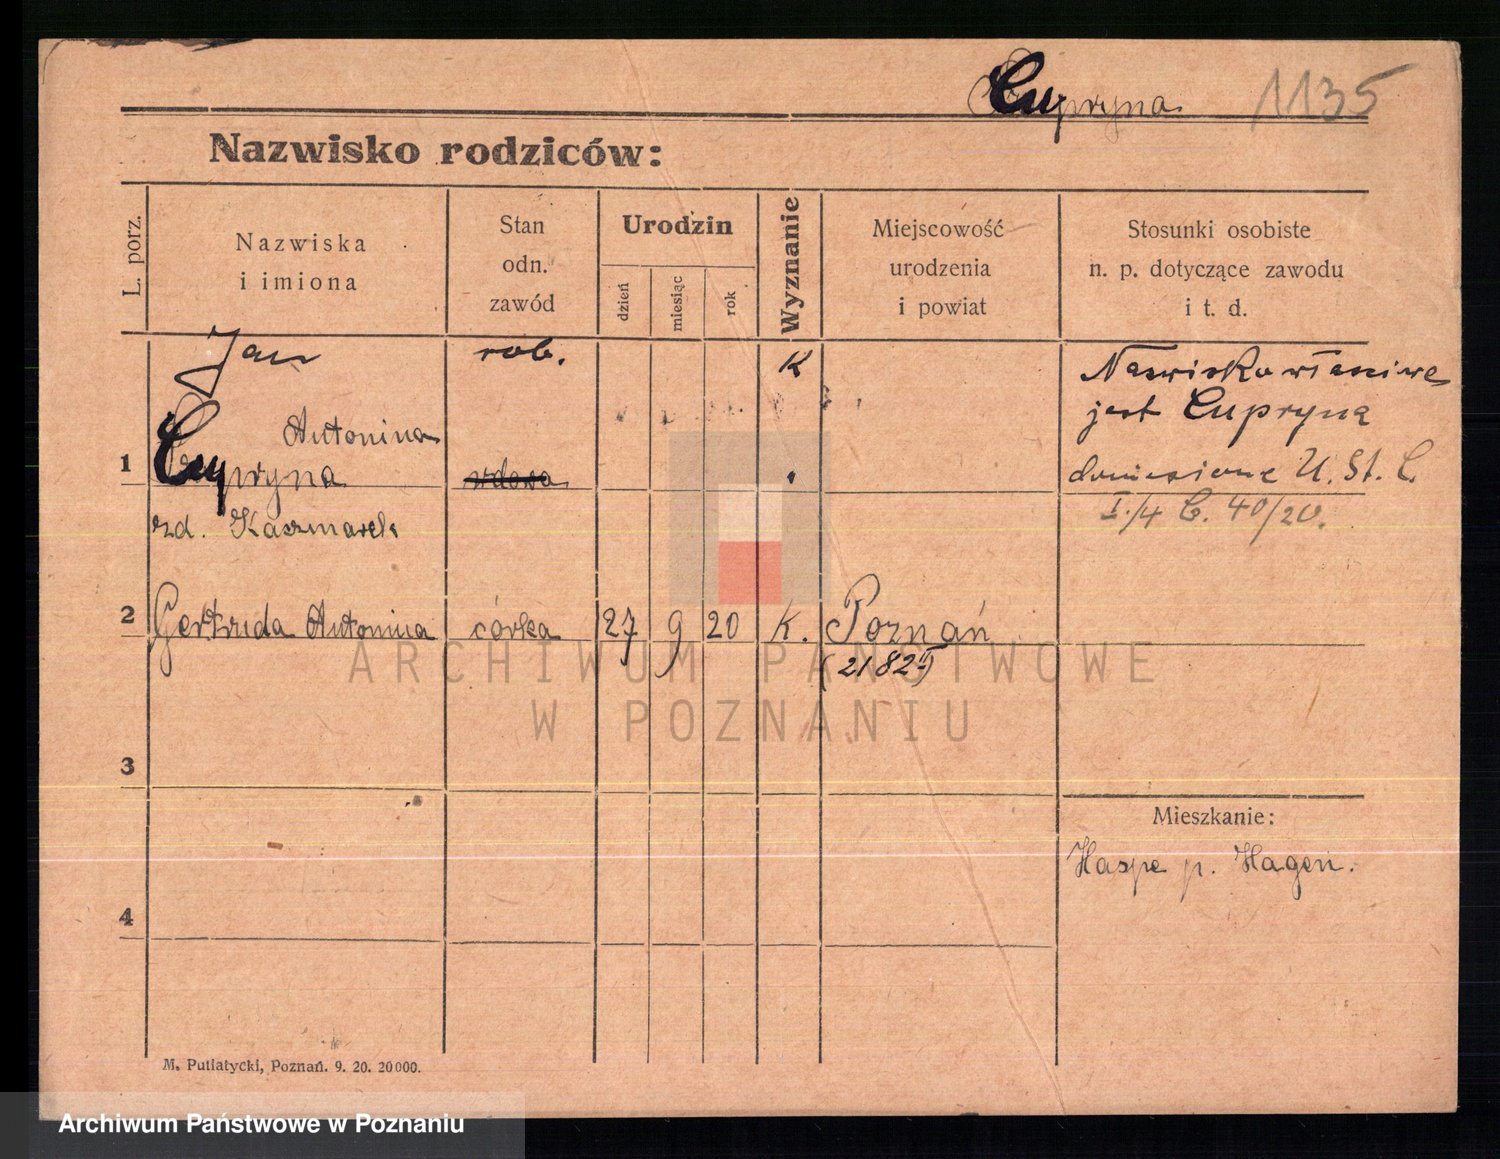 Cupryna 1135
Nazwisko rodziców:
L. porz.
Nazwiska
i imiona
Stan
odn.
zawód
Urodzin
dzień
miesiąc
rok
Wyznanie
Miejscowość
urodzenia
i powiat
Stosunki osobiste
n. p. dotyczące zawodu
i t. d.
Jan rob. K
Nazwisko właściwe
jest Cupryna
Antonina
1 Cupryna wdowa
doniesione U. St. C.
I./4 C. 40/20.
zd. Kaczmarek
2 Gertruda Antonina córka 27 9 20 K. Poznań
(2182 II)
ARCHIWUM PAŃSTWOWE
W POZNANIU
3
Mieszkanie:
Haspe p. Hagen.
4
M. Putiatycki, Poznań. 9. 20. 20000.
Archiwum Państwowe w Poznaniu